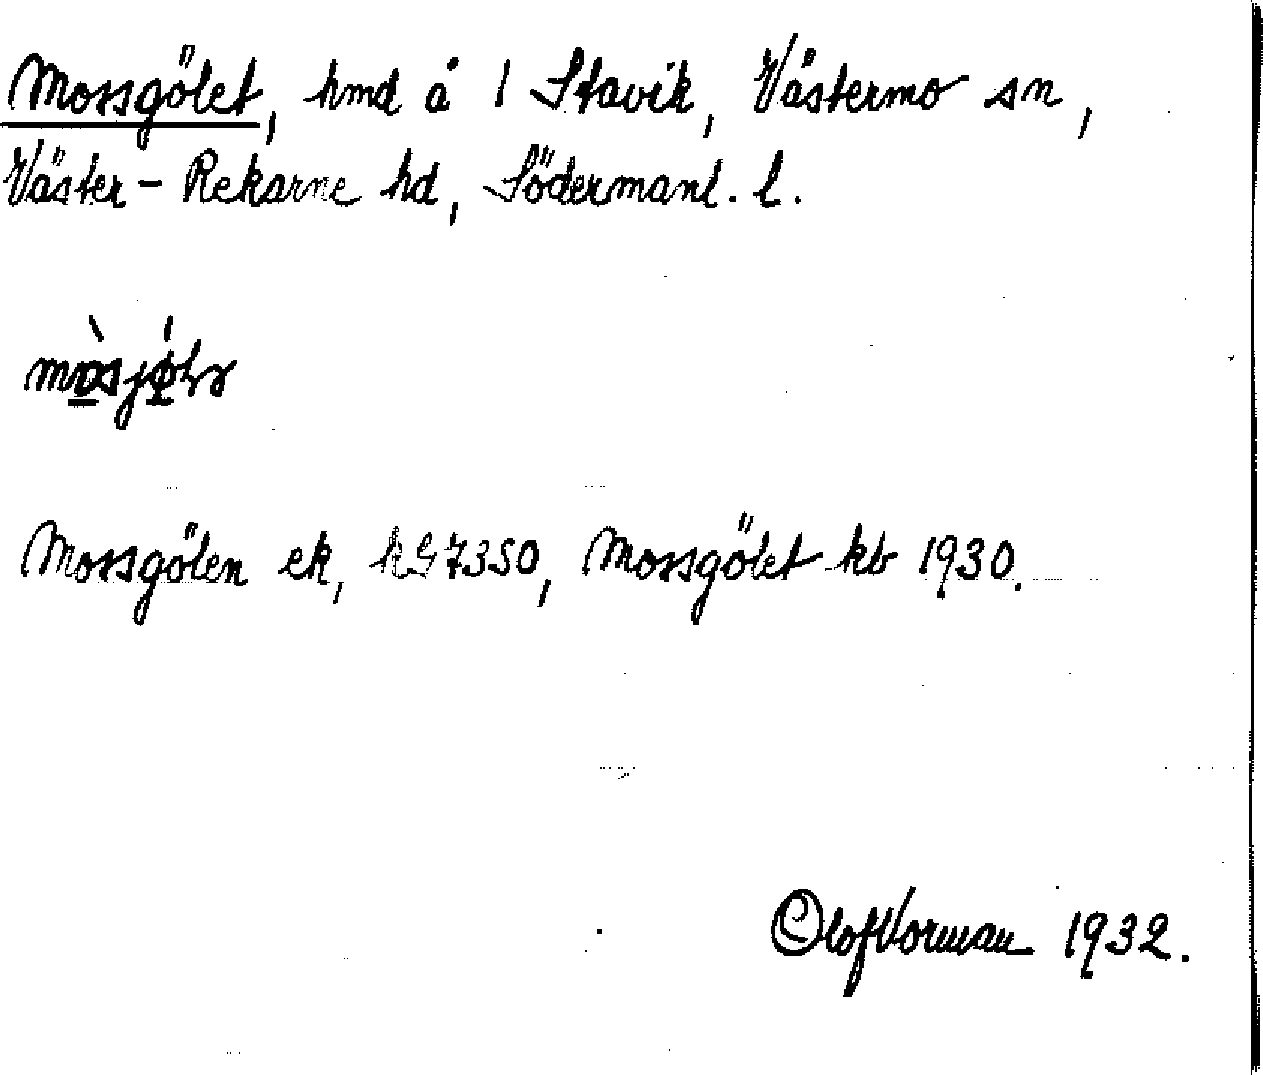 Mossgölet, hmd å 1 Stavik, Västermo sn,
Väster-Rekarne hd, Södermanl. l.
Mossgölen ek, kG 7350, Mossgölet kb 1930.
Olof Vorman 1932.